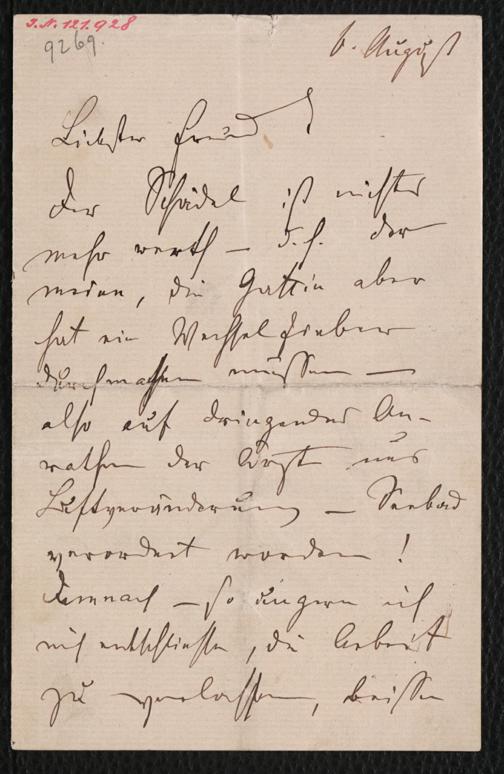 I.N. 121.928
9269.
6. August
Liebster Freund!
Der Schädel ist nichts
mehr werth – d.h. der
meine, die Gattin aber
hat ein Wechselfieber
durchmachen müssen –
also auf dringendes An-
rathen der Ärzte uns
Luftveränderung – Seebad
verordnet worden!
Demnach – so ungern ich
mich entschliesse, die Arbeit
zu verlassen, reissen